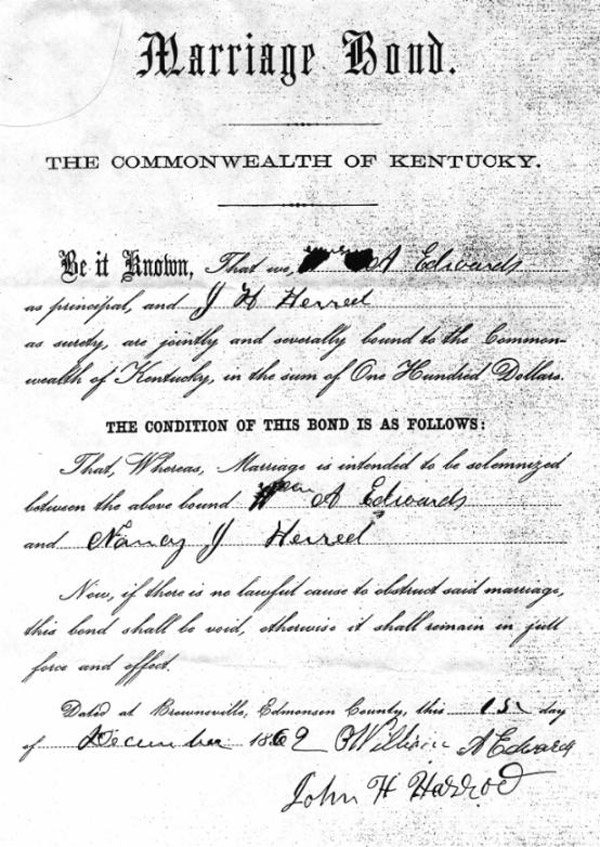 Marriage Bond.
THE COMMONWEALTH OF KENTUCKY.
Be it Known, That we, A Edwards
as principal, and J H Herred
as surety, are jointly and severally bound to the Common-
wealth of Kentucky, in the sum of One Hundred Dollars.
THE CONDITION OF THIS BOND IS AS FOLLOWS:
That, Whereas, Marriage is intended to be solemnized
between the above bound Wm A Edwards
and Nancy J Herred
Now, if there is no lawful cause to obstruct said marriage,
this bond shall be void, otherwise it shall remain in full
force and effect.
Dated at Brownsville, Edmonson County, this day
of December 1869 William A Edwards
John H Harrod